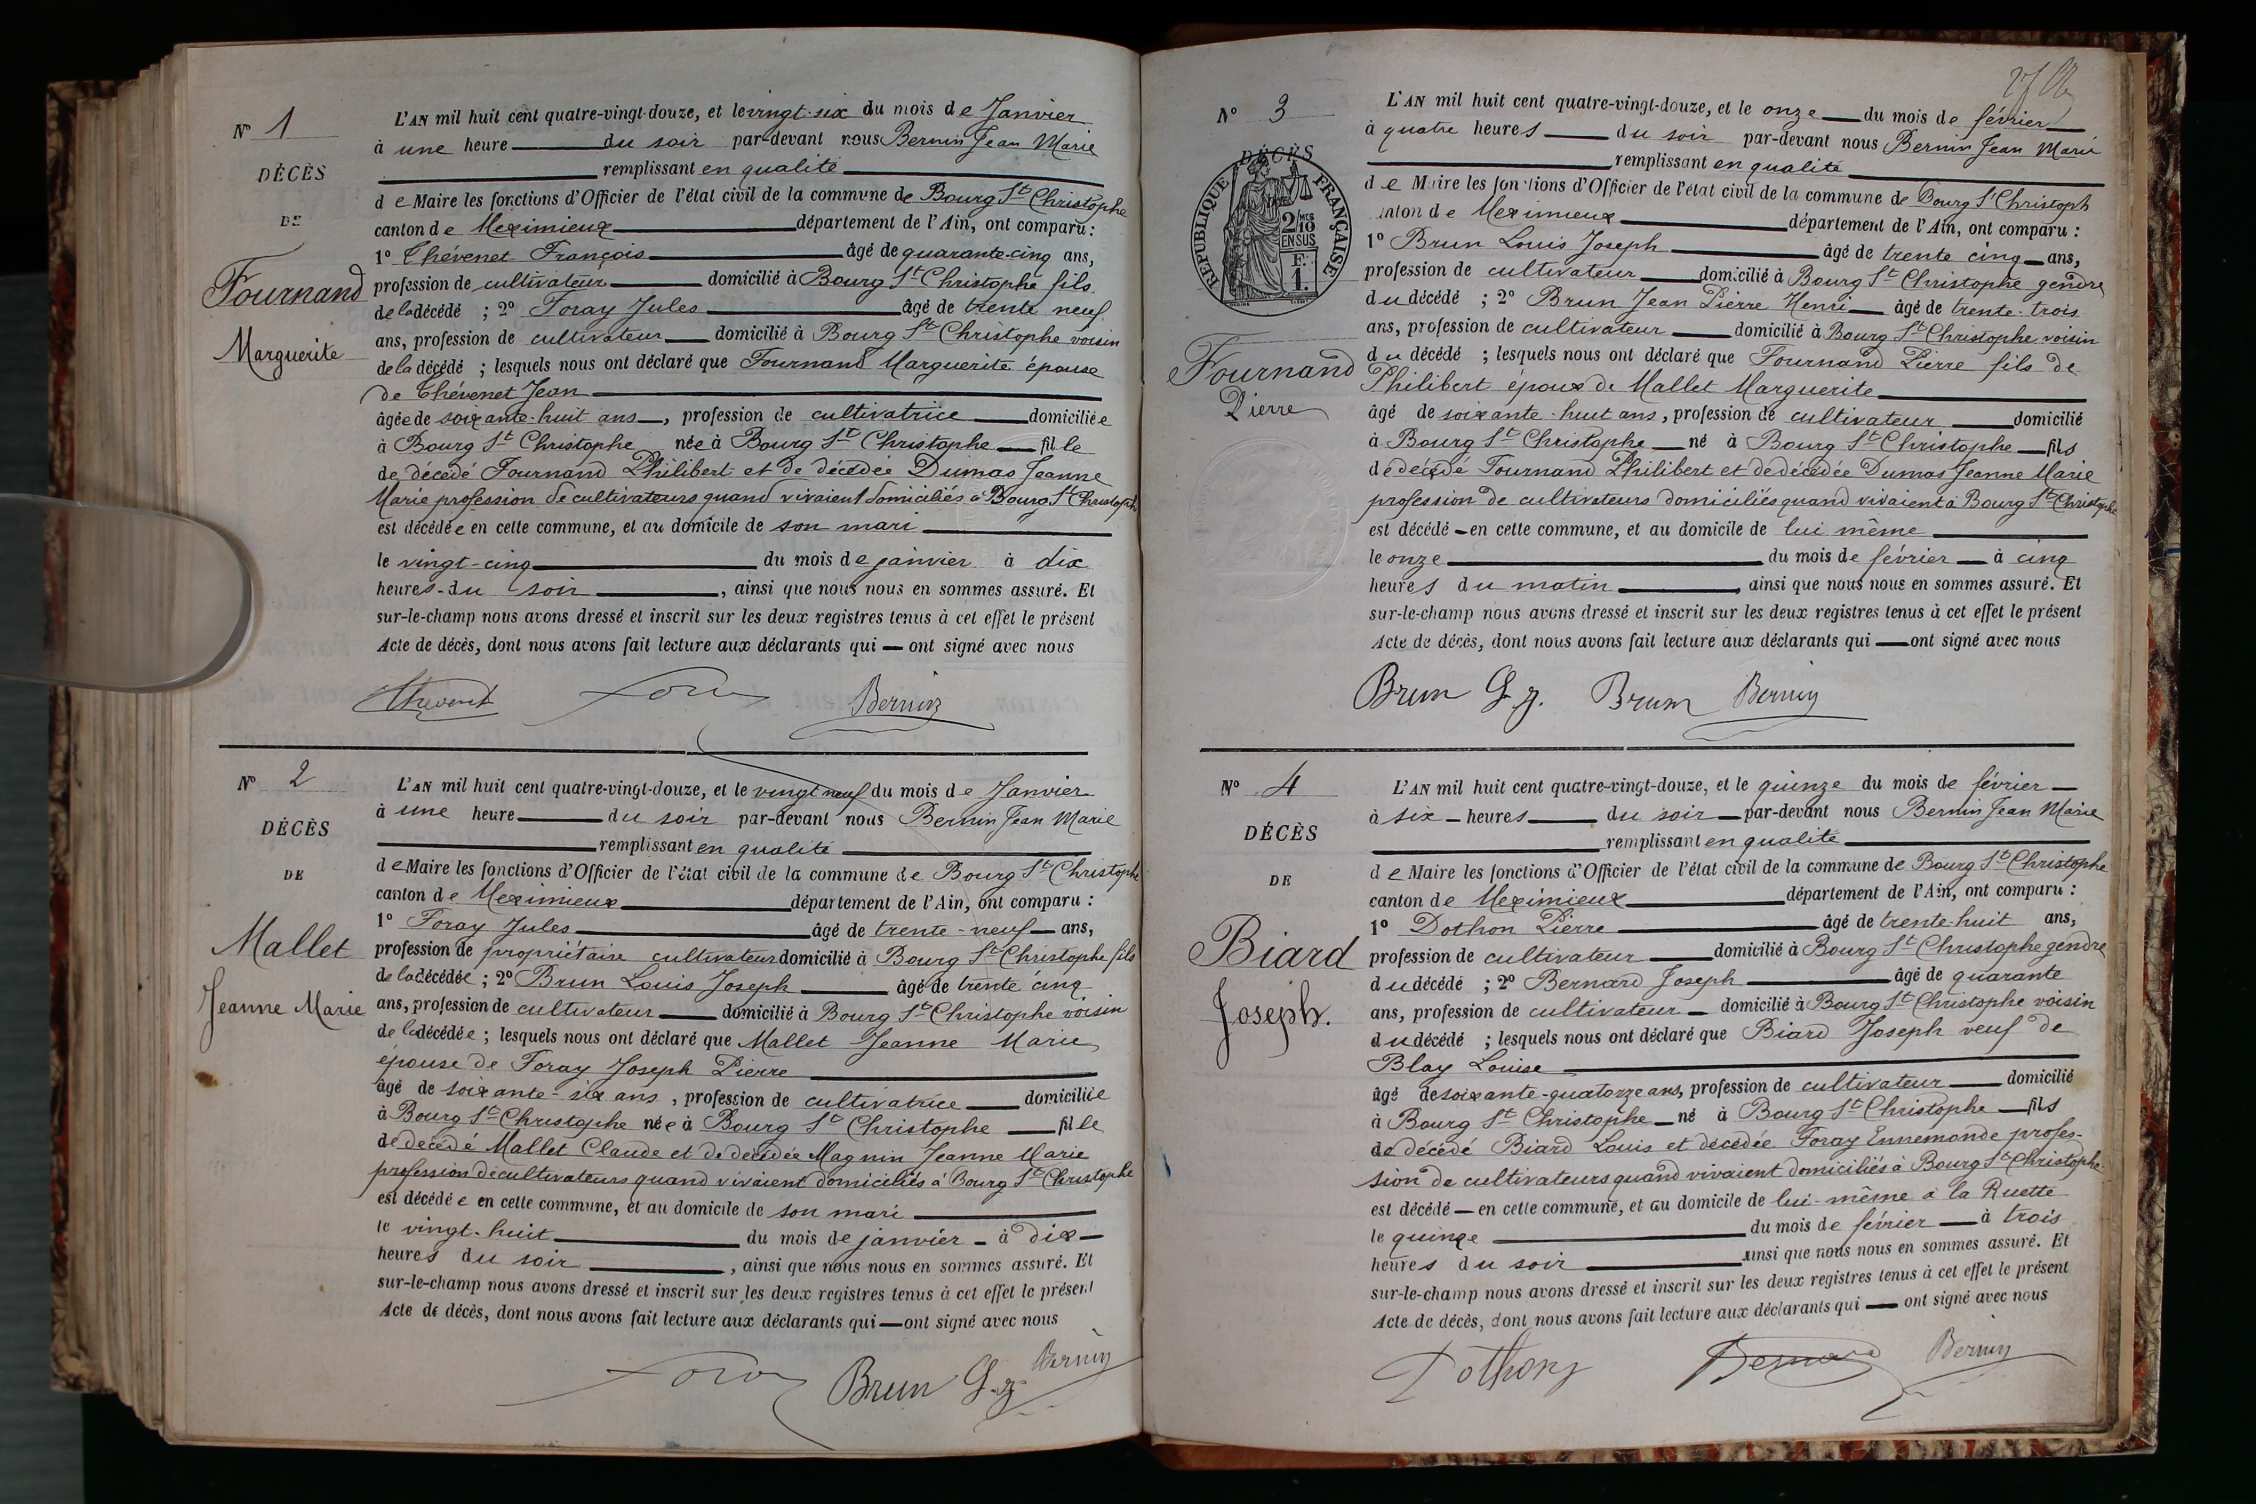 N° 1
DÉCÈS
DE
Fournand
Marguerite
L'AN mil huit cent quatre-vingt-douze, et le vingt-six du mois de Janvier
à une heure du soir par-devant nous Bernin Jean Marie
remplissant en qualité
de Maire les fonctions d'Officier de l'état civil de la commune de Bourg St Christophe
canton de Meximieux département de l'Ain, ont comparu :
1° Thévenet François âgé de quarante-cinq ans,
profession de cultivateur domicilié à Bourg St Christophe fils
de la décédé ; 2° Foray Jules âgé de trente neuf
ans, profession de cultivateur domicilié à Bourg St Christophe voisin
de la décédé ; lesquels nous ont déclaré que Fournand Marguerite épouse
de Thévenet Jean
âgée de soixante-huit ans, profession de cultivatrice domiciliée
à Bourg St Christophe née à Bourg St Christophe fille
de décédé Fournand Philibert et de décédée Dumas Jeanne
Marie profession de cultivateurs quand vivaient domiciliés à Bourg St Christophe
est décédée en cette commune, et au domicile de son mari
le vingt-cinq du mois de janvier à dix
heures du soir, ainsi que nous nous en sommes assuré. Et
sur-le-champ nous avons dressé et inscrit sur les deux registres tenus à cet effet le présent
Acte de décès, dont nous avons fait lecture aux déclarants qui ont signé avec nous
Bernin
N° 2
DÉCÈS
DE
Mallet
Jeanne Marie
L'AN mil huit cent quatre-vingt-douze, et le vingt neuf du mois de Janvier
à une heure du soir par-devant nous Bernin Jean Marie
remplissant en qualité
de Maire les fonctions d'Officier de l'état civil de la commune de Bourg St Christophe
canton de Meximieux département de l'Ain, ont comparu :
1° Foray Jules âgé de trente-neuf ans,
profession de propriétaire cultivateur domicilié à Bourg St Christophe fils
de la décédée ; 2° Brun Louis Joseph âgé de trente cinq
ans, profession de cultivateur domicilié à Bourg St Christophe voisin
de la décédée ; lesquels nous ont déclaré que Mallet Jeanne Marie
épouse de Foray Joseph Pierre
âgé de soixante-six ans, profession de cultivatrice domiciliée
à Bourg St Christophe née à Bourg St Christophe fille
de décédé Mallet Claude et de décédée Magnin Jeanne Marie
profession de cultivateurs quand vivaient domiciliés à Bourg St Christophe
est décédée en cette commune, et au domicile de son mari
le vingt-huit du mois de janvier à dix
heures du soir, ainsi que nous nous en sommes assuré. Et
sur-le-champ nous avons dressé et inscrit sur les deux registres tenus à cet effet le présent
Acte de décès, dont nous avons fait lecture aux déclarants qui ont signé avec nous
Brun Bernin
N° 3
DÉCÈS
RÉPUBLIQUE FRANÇAISE
2/10
EN SUS
F.
1.
Fournand
Pierre
L'AN mil huit cent quatre-vingt-douze, et le onze du mois de février
à quatre heures du soir par-devant nous Bernin Jean Marie
remplissant en qualité
de Maire les fonctions d'Officier de l'état civil de la commune de Bourg St Christoph
canton de Meximieux département de l'Ain, ont comparu :
1° Brun Louis Joseph âgé de trente cinq ans,
profession de cultivateur domicilié à Bourg St Christophe gendre
du décédé ; 2° Brun Jean Pierre Henri âgé de trente-trois
ans, profession de cultivateur domicilié à Bourg St Christophe voisin
du décédé ; lesquels nous ont déclaré que Fournand Pierre fils de
Philibert époux de Mallet Marguerite
âgé de soixante-huit ans, profession de cultivateur domicilié
à Bourg St Christophe né à Bourg St Christophe fils
de décédé Fournand Philibert et de décédée Dumas Jeanne Marie
profession de cultivateurs domiciliés quand vivaient à Bourg St Christophe
est décédé en cette commune, et au domicile de lui même
le onze du mois de février à cinq
heures du matin, ainsi que nous nous en sommes assuré. Et
sur-le-champ nous avons dressé et inscrit sur les deux registres tenus à cet effet le présent
Acte de décès, dont nous avons fait lecture aux déclarants qui ont signé avec nous
Brun Brun Bernin
N° 4
DÉCÈS
DE
Biard
Joseph.
L'AN mil huit cent quatre-vingt-douze, et le quinze du mois de février
à six heures du soir par-devant nous Bernin Jean Marie
remplissant en qualité
de Maire les fonctions d'Officier de l'état civil de la commune de Bourg St Christophe
canton de Meximieux département de l'Ain, ont comparu :
1° Dothon Pierre âgé de trente-huit ans,
profession de cultivateur domicilié à Bourg St Christophe gendre
du décédé ; 2° Bernard Joseph âgé de quarante
ans, profession de cultivateur domicilié à Bourg St Christophe voisin
du décédé ; lesquels nous ont déclaré que Biard Joseph veuf de
Blay Louise
âgé de soixante-quatorze ans, profession de cultivateur domicilié
à Bourg St Christophe né à Bourg St Christophe fils
de décédé Biard Louis et décédée Foray Ennemonde profes-
sion de cultivateurs quand vivaient domiciliés à Bourg St Christophe
est décédé en cette commune, et au domicile de lui-même à la Ruette
le quinze du mois de février à trois
heures du soir ainsi que nous nous en sommes assuré. Et
sur-le-champ nous avons dressé et inscrit sur les deux registres tenus à cet effet le présent
Acte de décès, dont nous avons fait lecture aux déclarants qui ont signé avec nous
Dothon Bernard Bernin